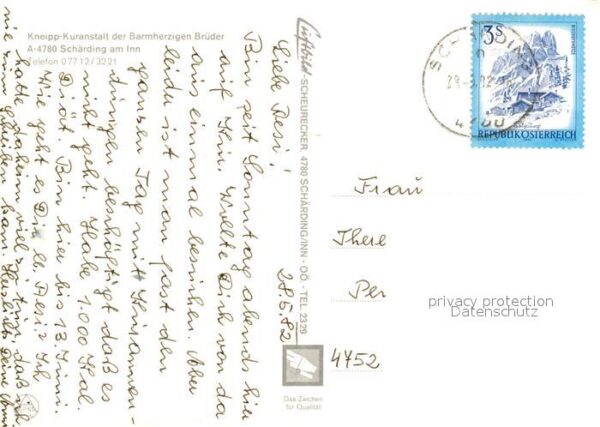 Kneipp-Kuranstalt der Barmherzigen Brüder
A-4780 Schärding am Inn
Telefon 07712/3221
28.5.82
Liebe Resi!
Bin seit Sonntag abends hier
auf Kur. Wollte Dich von da
aus einmal besuchen. Aber
leider ist man fast den
ganzen Tag mit
dungen beschäftigt daß es
nicht geht. Habe 1.000 Kal.
Diät. Bin hier bis 13. Juni.
Wie geht es Dir lb. Resi? Ich
hatte daheim viel zu tun, daß ich
nie zum Schreiben kam. Herzlichst Deine
Luftbild-SCHEURECKER, 4780 SCHÄRDING/INN - OÖ. - TEL. 2329
Das Zeichen
für Qualität
SCHÄRDING
4780
3S
REPUBLIK ÖSTERREICH
Frau
There
Per
4752
privacy protection
Datenschutz